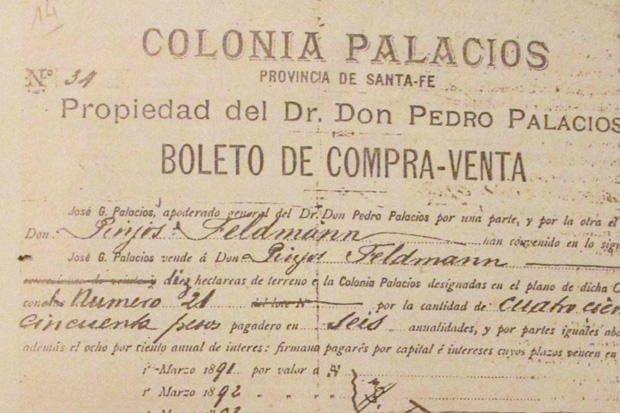 14
COLONIA PALACIOS
Nº 34
PROVINCIA DE SANTA-FE
Propiedad del Dr. Don PEDRO PALACIOS
BOLETO DE COMPRA-VENTA
José G. Palacios, apoderado general del Dr. Don Pedro Palacios por una parte, y por la otra el
Don. Pinjos Feldmann han convenido en lo sigu
José G. Palacios vende á Don Pinjos Feldmann
diez hectareas de terreno e la Colonia Palacios designadas en el plano de dicha C
con Numero 21 del lote Nº por la cantidad de cuatro cien
cincuenta pesos pagadero en seis anualidades, y por partes iguales abo
además el ocho por ciento anual de interes: firmana pagarés por capital é intereses cuyos plazos vencen en
1º Marzo 1891 por valor a
1º Marzo 1892 „ „